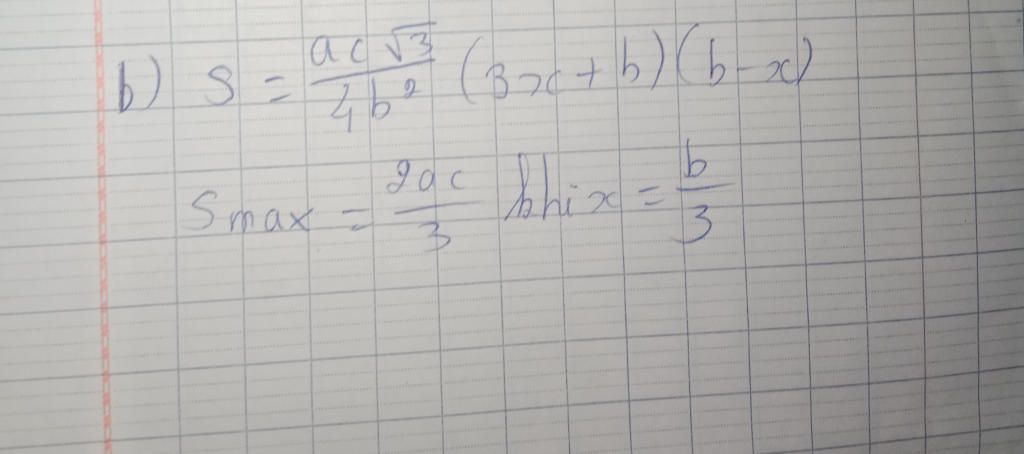 b) S = \frac{ac\sqrt{3}}{4b^2} (3x + b)(b - x)
Smax = \frac{2ac}{3} khi x = \frac{b}{3}